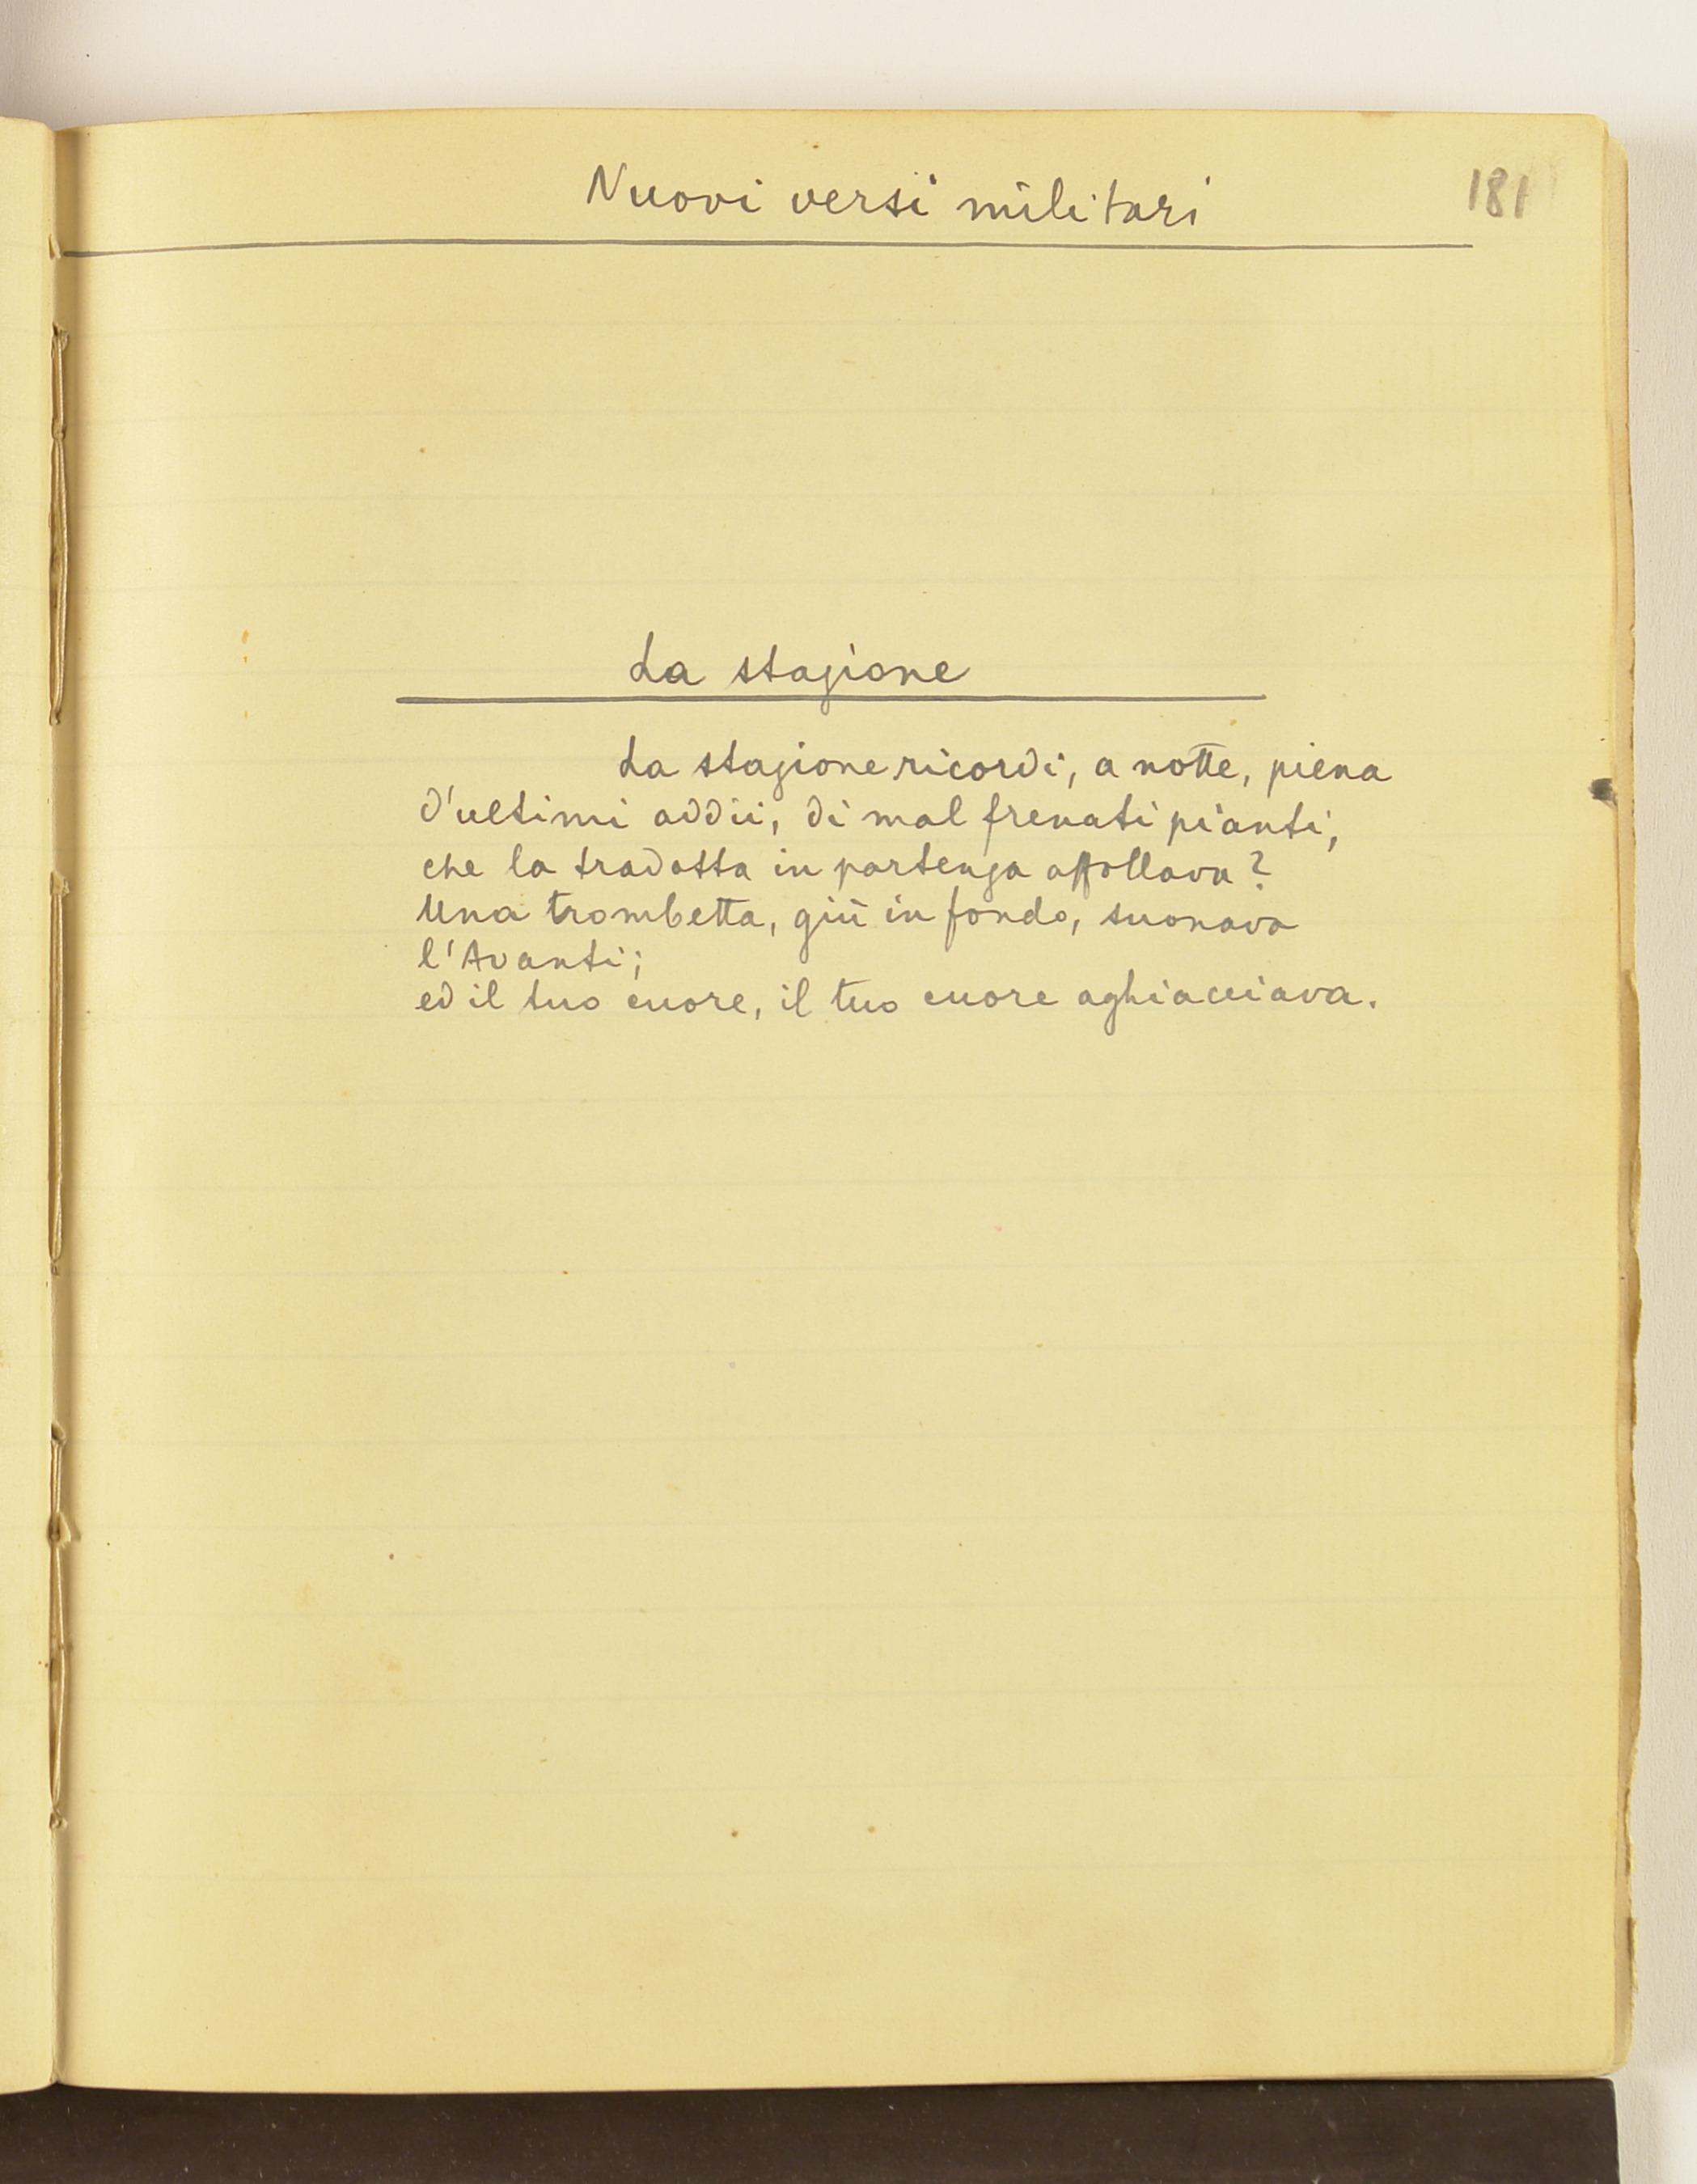 Nuovi versi militari
181
La stagione
La stagione ricordi, a notte, piena
d'ultimi addii, di mal frenati pianti,
che la tradotta in partenza affollava?
Una trombetta, giù in fondo, suonava
l'Avanti;
ed il tuo cuore, il tuo cuore aghiacciava.